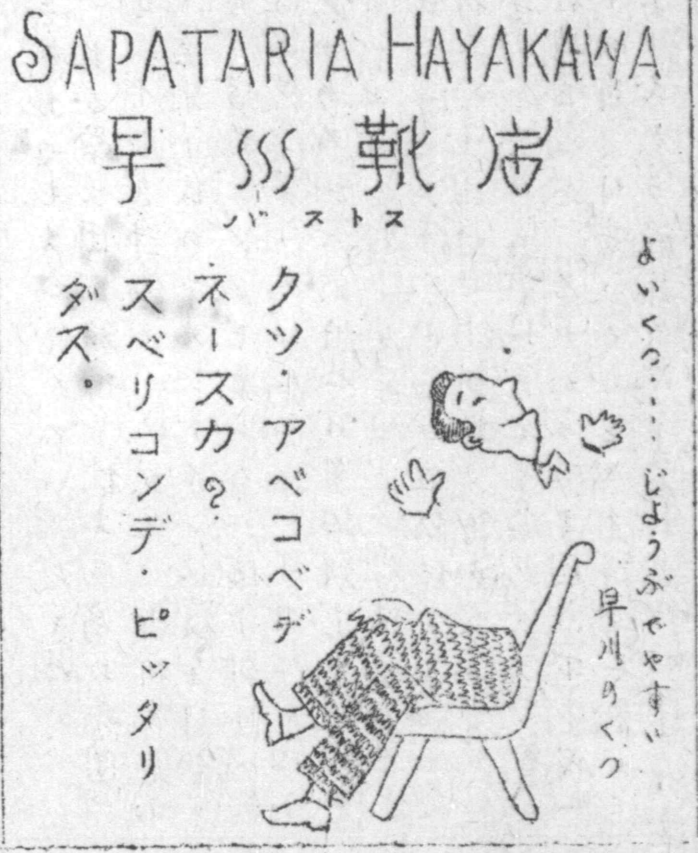 SAPATARIA HAYAKAWA
早川靴店
バストス
よいくつ・・・・じょうぶでやすい
早川のくつ
クツ・アベコベデ
ネースカ?
スベリコンデ・ピッタリ
ダス。